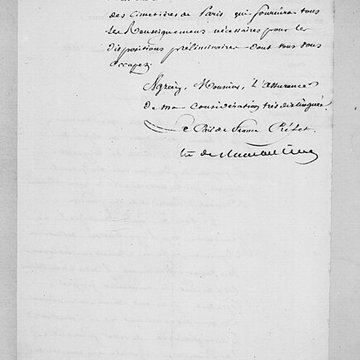 des Cimetières de Paris qui fournira tous
les Renseignemens nécessaires pour les
dispositions préliminaires dont vous vous
occupez.
Agréez, Monsieur, l'assurance
de ma considération très distinguée
Le Pair de France Préfet
Cte de